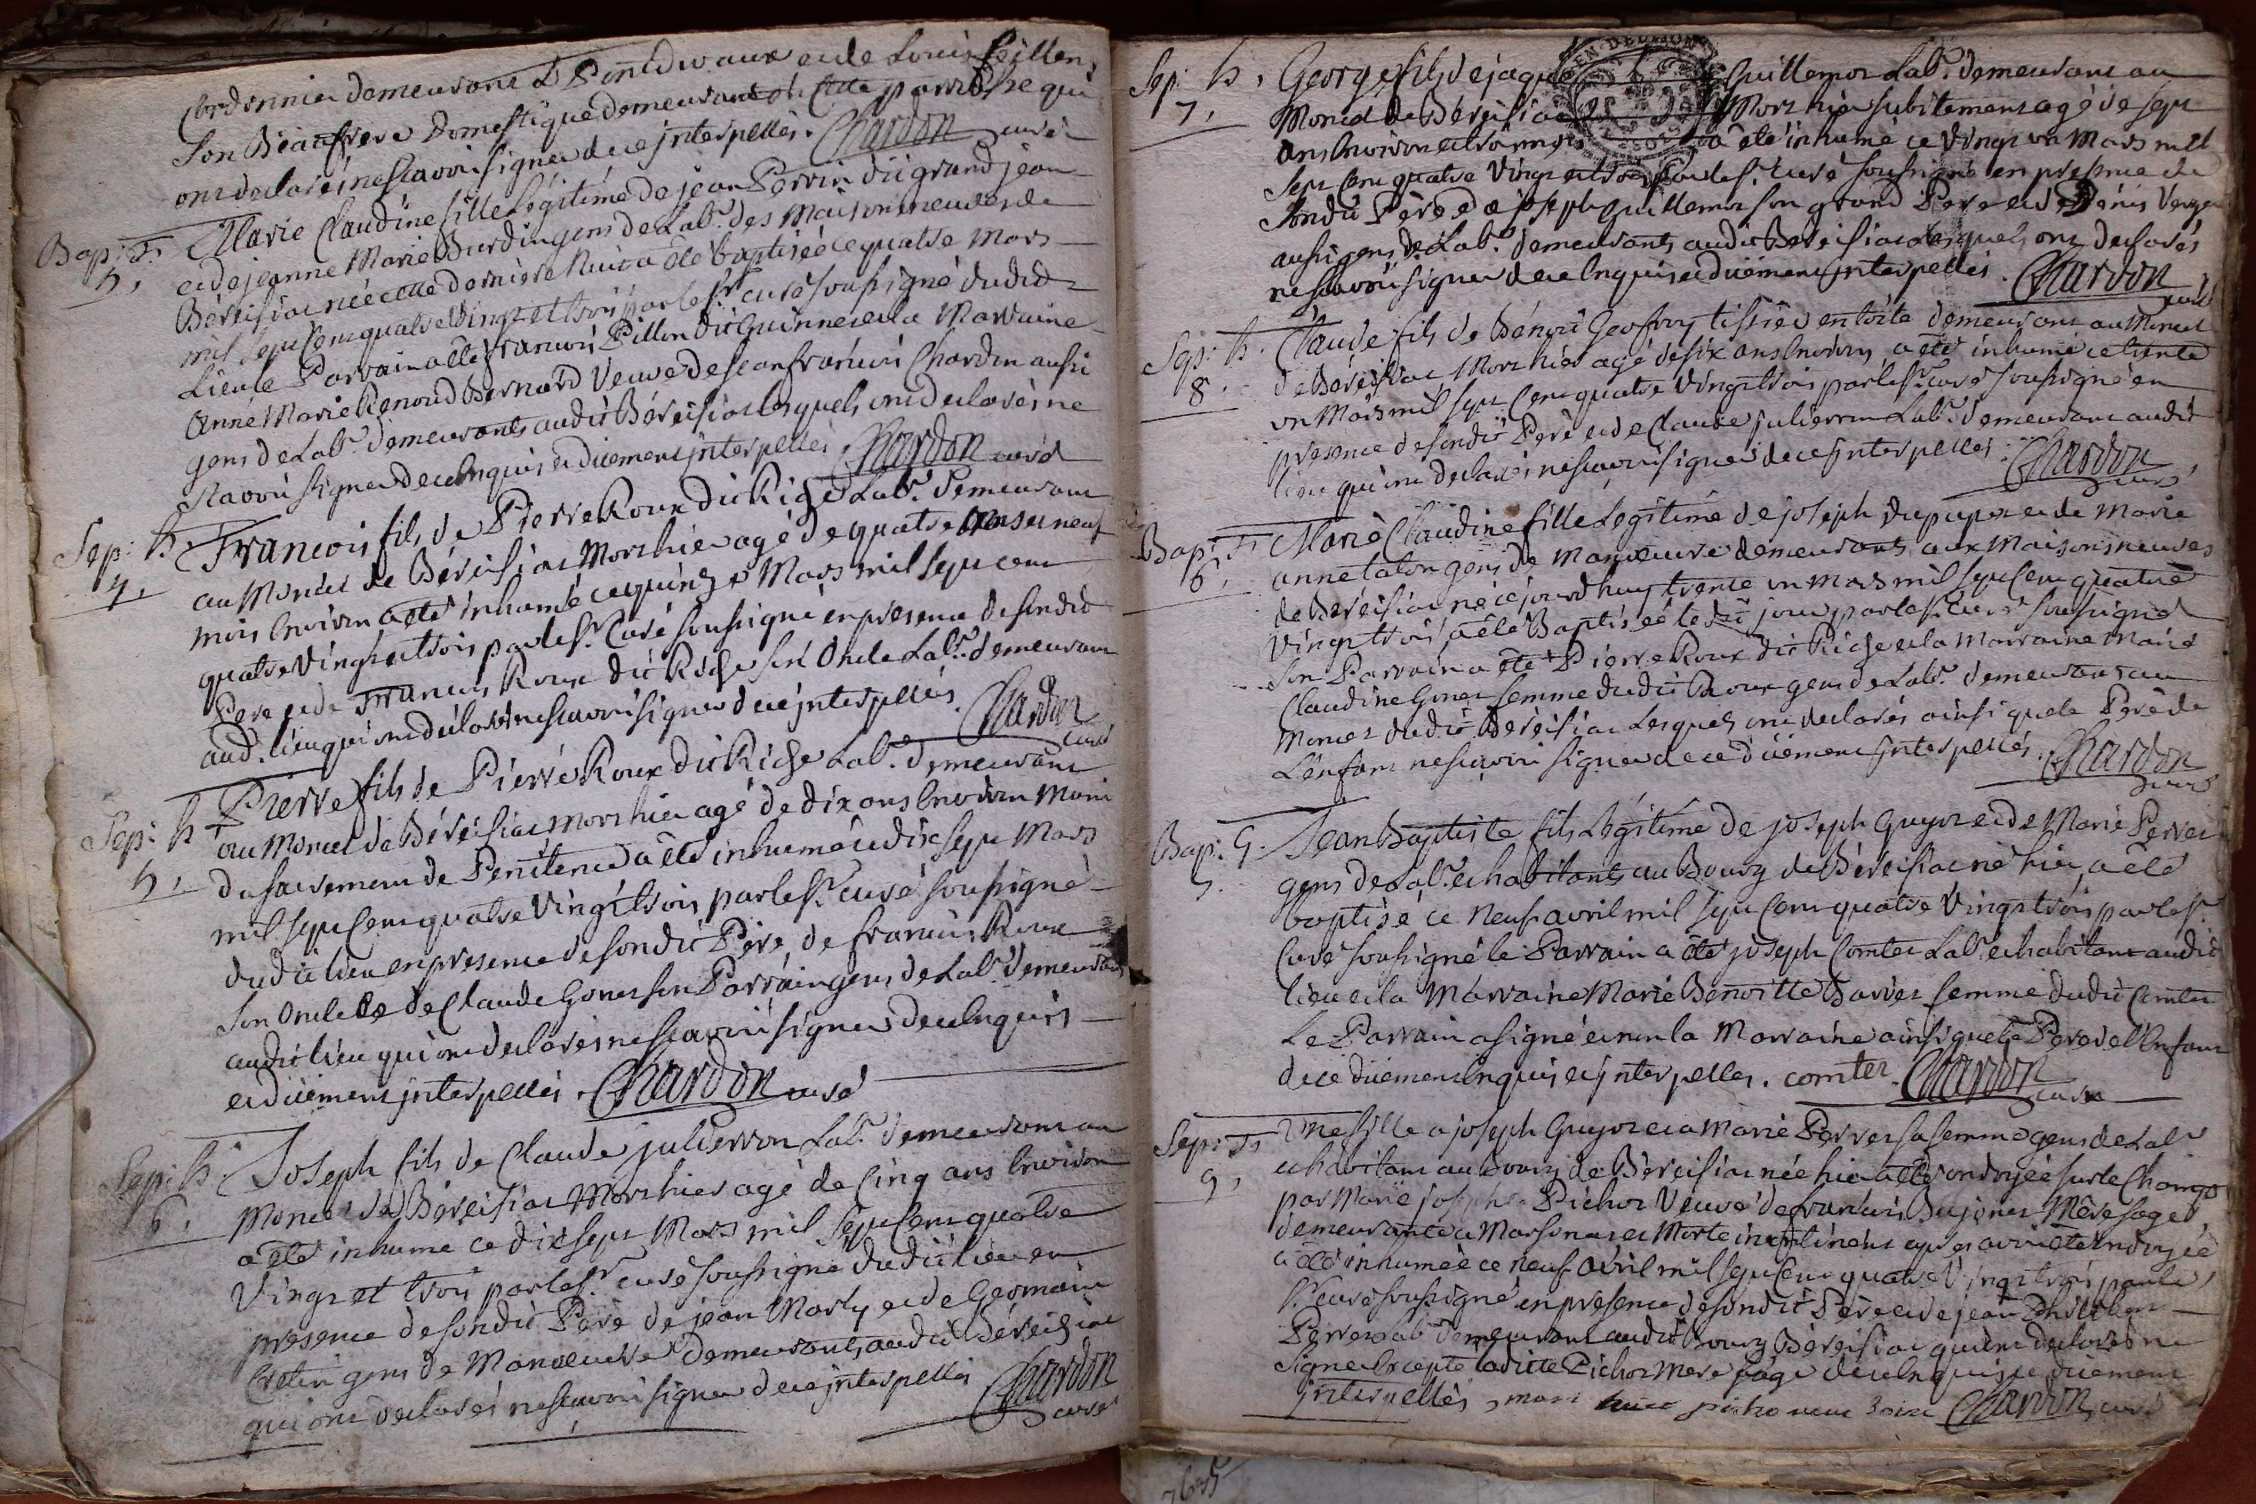 Cordonnier demeurant à Pont de vaux et de Louis
Son Beaufrere Domestique demeurant en cette parroisse qui
ont declarés ne sçavoir signer de ce jnterpellés. Chardon curé
Bap: F. Marie Claudine fille Légitime de jean Perrin dit grand jean
5, et de jeanne Marie Burdin gens de Labr. des Maisonneuves de
Béreisiat née cette derniere Nuit a été baptisée ce quatre Mars
mil Sept Cent quatre Vingt et trois par le Sr. curé soussigné dudit
Lieu le Parrain a été françois Pillon dit Guinnet et la Marraine
Anne Marie Renoud Bernard Veuve de Jean françois Chardon aussi
gens de Labr. demeurants audit Béreisiat lesquels ont declarés ne
sçavoir signer de ce Enquis et düement jnterpellés Chardon curé
Sep: h. François fils de Pierre Roux dit Riche Labr. demeurant
4, au Moncel de Béreisiat Mort hier agé de quatre ans et neuf
mois Environ a été inhumé ce quinze Mars mil Sept cent
quatre Vingt et trois par le Sr. Curé soussigné en presence de sondit
Pere et de François Roux dit Riche son Oncle Labr. demeurant
aud. lieu qui ont declarés ne sçavoir signer de ce jnterpellés. Chardon
curé
Sep: h Pierre fils de Pierre Roux dit Riche Lab. demeurant
5, au Moncel de Béreisiat mort hier agé de dix ans Environ Muni
du sacrement de Penitence a été inhumé ce dix sept Mars
mil Sept Cent quatre Vingt trois par le Sr. curé soussigné
dudit lieu en presence de sondit Pere, de francois Roux
son Oncle et de Claude Gonet son Parrain gens de Labr. demeurants
audit lieu qui ont declarés ne sçavoir signer de ce Enquis
et düement jnterpellés. Chardon curé
Sep: h. Joseph fils de Claude julierron Labr. demeurant au
6. Moncel de Béreisiat Mort hier agé de Cinq ans Environ
a été inhumé ce dix sept Mars mil Sept Cent quatre
Vingt et trois par le Sr. curé soussigné dudit lieu en
presence de sondit Pere de jean Marly et de Germain
Cretin gens de Manoeuvre demeurants audit Béreisiat
qui ont declarés ne sçavoir signer de ce jnterpellés Chardon
curé
Sep: h, George fils de jaque Guillemot Labr. demeurant au
7, Moncel de Béreisiat Mort hier subitement agé de sept
ans Environ et trois mois a été inhumé ce Vingt un Mars mil
Sept Cent quatre Vingt et trois par le Sr. curé soussigné en presence de
sondit Pere de joseph Guillemot son grand Pere et de Denis Verger
aussi gens de Labr. demeurants audit Béreisiat lesquels ont declarés
ne sçavoir signer de ce Enquis et düement jnterpellés. Chardon
curé
Sep: h. Claude fils de Bénoit Geofroy tissier en toile demeurant au Moncel
8. de Béreisiat Mort hier agé de six ans Environ a été inhumé ce trente
un Mars mil Sept Cent quatre Vingt trois par le Sr. curé soussigné en
presence de sondit Pere et de Claude julierron Labr. demeurant audit
lieu qui ont declarés ne sçavoir signer de ce jnterpellés. Chardon
curé
Bap: F. Marie Claudine fille Legitime de joseph Dupupet et de Marie
6, anne talon gens de Manoeuvre demeurants aux Maisonsneuves
de Béreisiat née cejourdhuy trente un Mars mil Sept Cent quatre
Vingt trois a été Baptisée le dit jour par le Sr. curé soussigné
Son Parrain a été Pierre Roux dit Riche et la Marraine Marie
Claudine Gonet femme dudit Roux gens de Labr. demeurants au
Moncel dudit Béreisiat Lesquels ont declarés ainsi que le Pere de
L'enfant ne sçavoir signer de ce düement jnterpellés. Chardon
curé
Bap: G. Jean Baptiste fils Légitime de joseph Guyot et de Marie Perret
5. gens de Labr. et habitants au Bourg de Béreisiat né hier a été
baptisé ce Neuf avril mil Sept Cent quatre Vingt trois par le Sr.
Curé soussigné le Parrain a été joseph Comtet Labr. et habitant audit
lieu et la Marraine Marie Benoitte Barret femme dudit Comtet
Le Parrain a signé et non la Marraine ainsi que le Pere de l'Enfant
de ce düement Enquis et jnterpelles. comtet. Chardon
curé
Sep: F. Une fille a joseph Guyot et a Marie Perret sa femme gens de Labr
9, et habitant au Bourg de Béreisiat née hier a été ondoyée sur le Champ
par Marie josephe Pichot Veuve de francois Bujonet Mere sage
demeurante a Marsonnat et Morte incontinent après avoir été Endoyée
a été inhumée ce neuf Avril mil Sept Cent quatre Vingt trois par le
Sr. curé soussigné en presence de sondit Pere et de jean Philibert
Perret Labr. demeurant audit Bourg Béreisiat qui ont declarés ne
signer Excepté ladite Pichot Mere sage de ce Enquis et düement
jnterpellés, Chardon curé